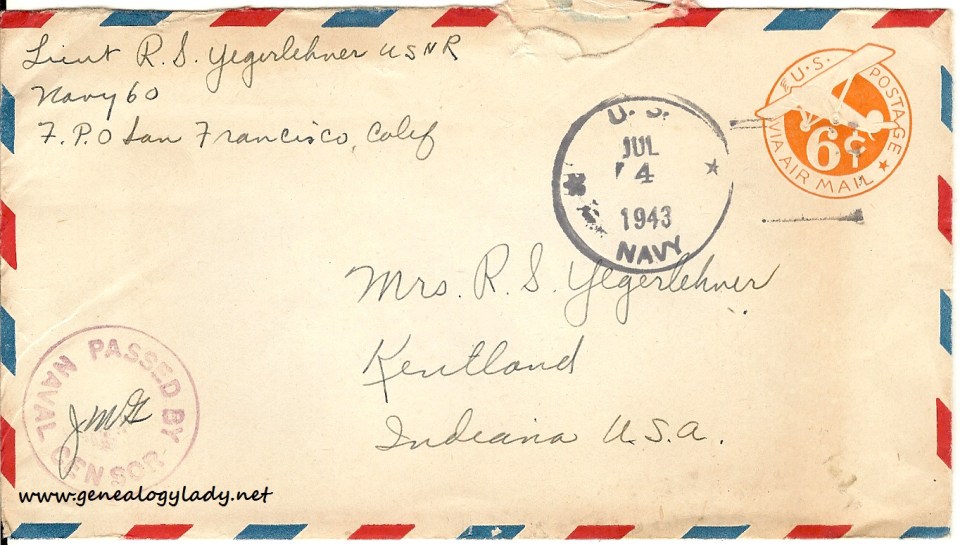 Lieut R. S. Yegerlehner USNR
Navy 60
F.P.O San Francisco, Calif
U.S. POSTAGE
6¢
VIA AIR MAIL
U. S.
JUL
4
1943
NAVY
Mrs. R. S. Yegerlehner
Kentland
Indiana U.S.A.
PASSED BY
NAVAL CENSOR
www.genealogylady.net